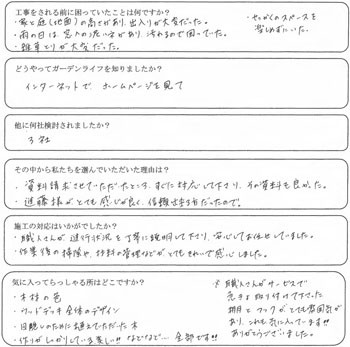 工事をされる前に困っていたことは何ですか?
・家と庭(地面)の高さがあり、出入りが大変だった。
・雨の日は、窓への泥はねがあり、汚れるので困っていた。
・雑草とりが大変だった。
・せっかくのスペースを
楽しめずにいた。
どうやってガーデンライフを知りましたか?
インターネットで ホームページを見て
他に何社検討されましたか?
3社
その中から私たちを選んでいただいた理由は?
・資料請求させていただいたところ、すぐに対応して下さり、その資料も良かった。
・進藤様がとても感じが良く、信頼出来すだったので。
施工の対応はいかがでしたか?
・職人さんが進行状況を丁寧に説明して下さり、安心してお任せしていました。
・作業後の掃除や、材料の管理などがとてもきれいで感心しました。
気に入ってらっしゃる所はどこですか?
・木材の色
・ウッドデッキ全体のデザイン
・目隠しのために植えていただいた木
・作りがしっかりしている美しい!! などなど… 全部です!!
※職人さんがサービスで
取り付けて下さった
フックがとても雰囲気が
あり、これも気に入っています!!
ありがとうございました。